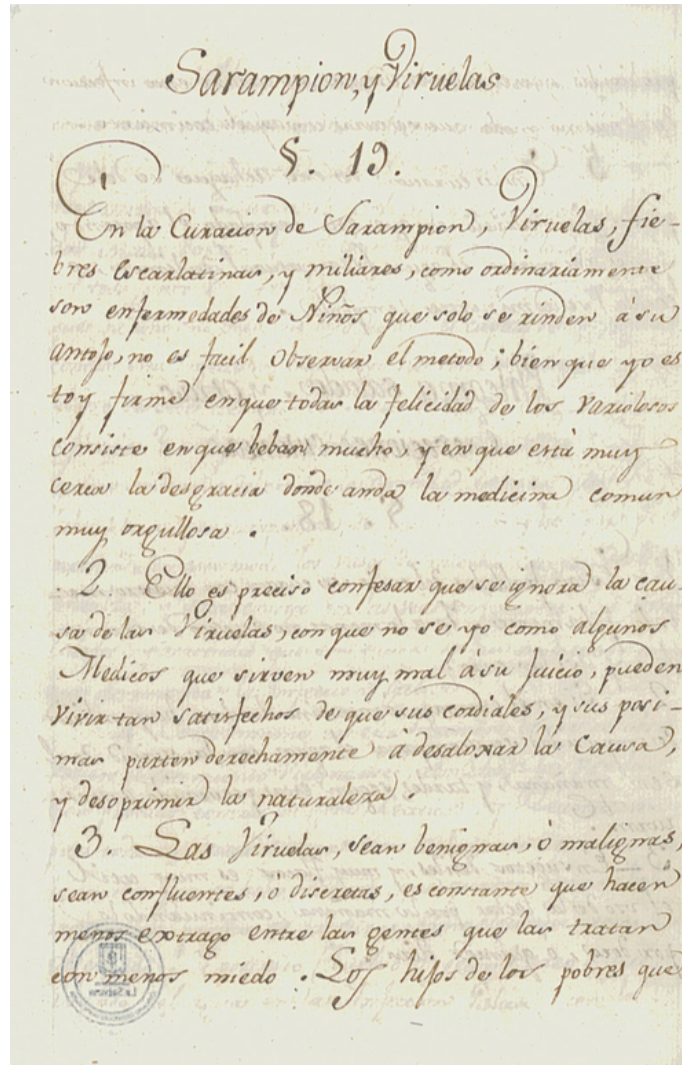 Sarampion, y Viruelas
§. 19.
En la Curacion de Sarampion, Viruelas, fie-
bres escarlatinas, y miliares, como ordinariamente
son enfermedades de Niños que solo se rinden à su
antojo, no es facil observar el metodo; bien que yo es
toy firme en que toda la felicidad de los variolosos
consiste en que beban mucho, y en que està muy
cerca la desgracia donde anda la medicina comun
muy orgullosa.
2. Ello es preciso confesar que se ignora la cau-
sa de las Viruelas, con que no se yo como algunos
Medicos que sirven muy mal à su juicio, pueden
vivir tan satisfechos de que sus cordiales, y sus
parten derechamente à desaloxar la causa,
y desoprimir la naturaleza.
3. Las Viruelas, sean benignas, ò malignas,
sean confluentes, ò discretas, es constante que hacen
menos extrago entre las gentes que las tratan
con menos miedo. Los hijos de los pobres que